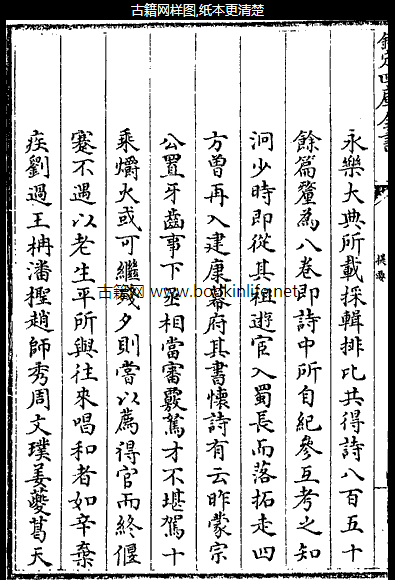 古籍网样图,纸本更清楚
欽定四庫全書
提要
永樂大典所載採輯排比共得詩八百五十
餘篇釐為八卷即詩中所自紀參互考之知
泂少時即從其祖遊宦入蜀長而落拓走四
方曽再入建康幕府其書懷詩有云昨蒙宗
公置牙齒事下丞相當審覈駑才不堪駕十
乘爝火或可繼殘夕則嘗以薦得官而終偃
蹇不遇以老生平所與往來唱和者如辛棄
疾劉過王柟潘檉趙師秀周文璞姜夔葛天
古籍网 www.bookinlife.net